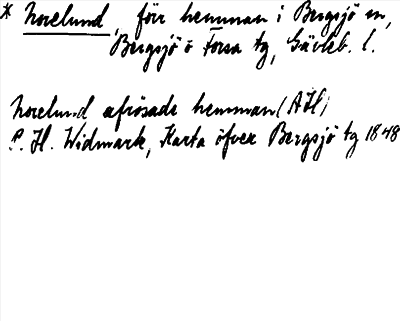 * Norelund, förr hemman i Bergsjö sn,
Bergsjö o Forsa tg, Gävleb. l.
Norelund afrösade hemman (AÄ)
P. H. Widmark, Karta öfver Bergsjö tg 1848